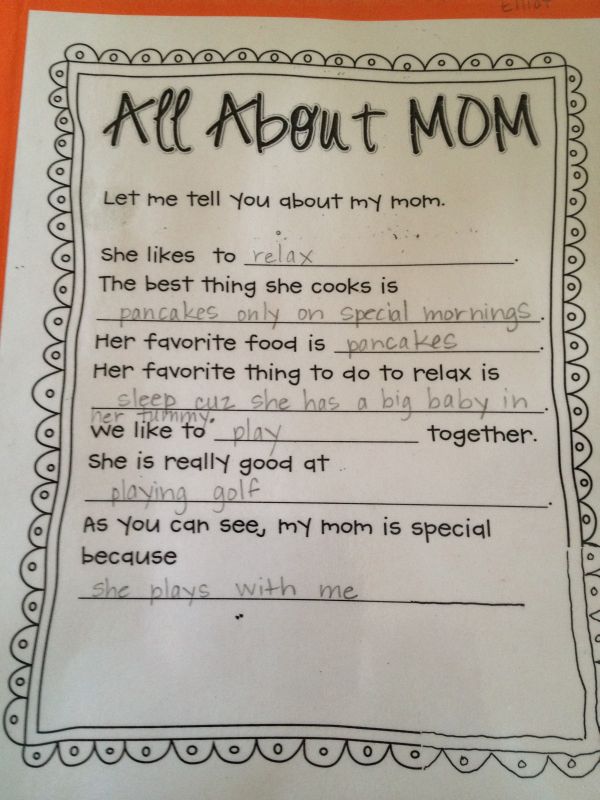 Elliot
All About MOM
Let me tell you about my mom.
She likes to relax.
The best thing she cooks is
pancakes only on special mornings.
Her favorite food is pancakes.
Her favorite thing to do to relax is
sleep cuz she has a big baby in.
her tummy.
We like to play together.
She is really good at
playing golf.
As you can see, my mom is special
because
she plays with me